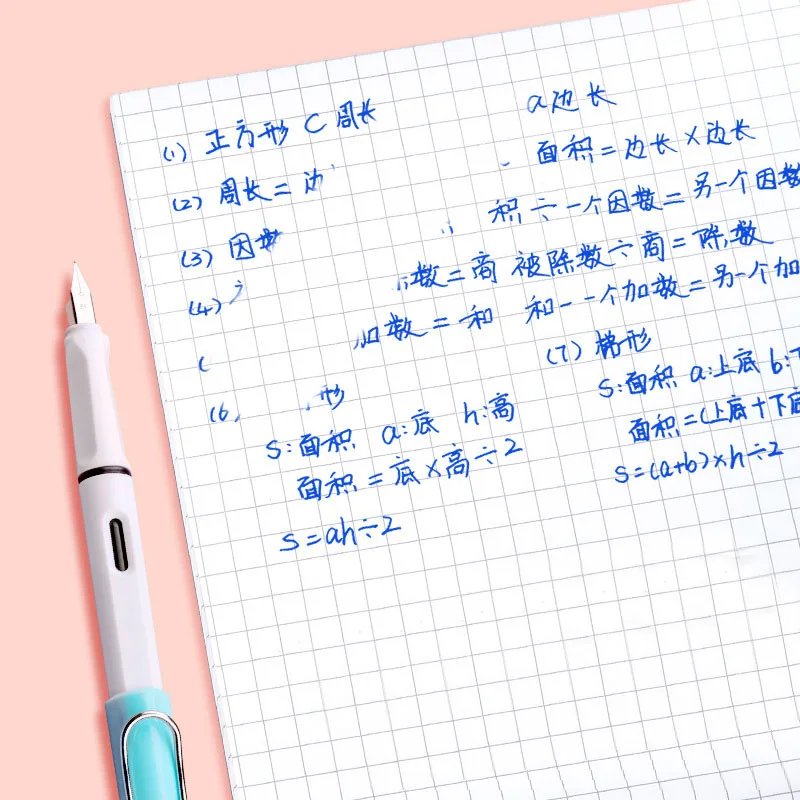 (1) 正方形 C 周长 a边长
(2) 周长 = 边 面积 = 边长 × 边长
(3) 因数 积 ÷ 一个因数 = 另一个因数
(4) 数 = 商 被除数 ÷ 商 = 除数
( 加数 = 和 和 - 一个加数 = 另一个加
(6 形
S:面积 a:底 h:高
面积 = 底 × 高 ÷ 2
S = ah ÷ 2
(7) 梯形
S:面积 a:上底 b:下
面积 = (上底 + 下底
S = (a+b) × h ÷ 2